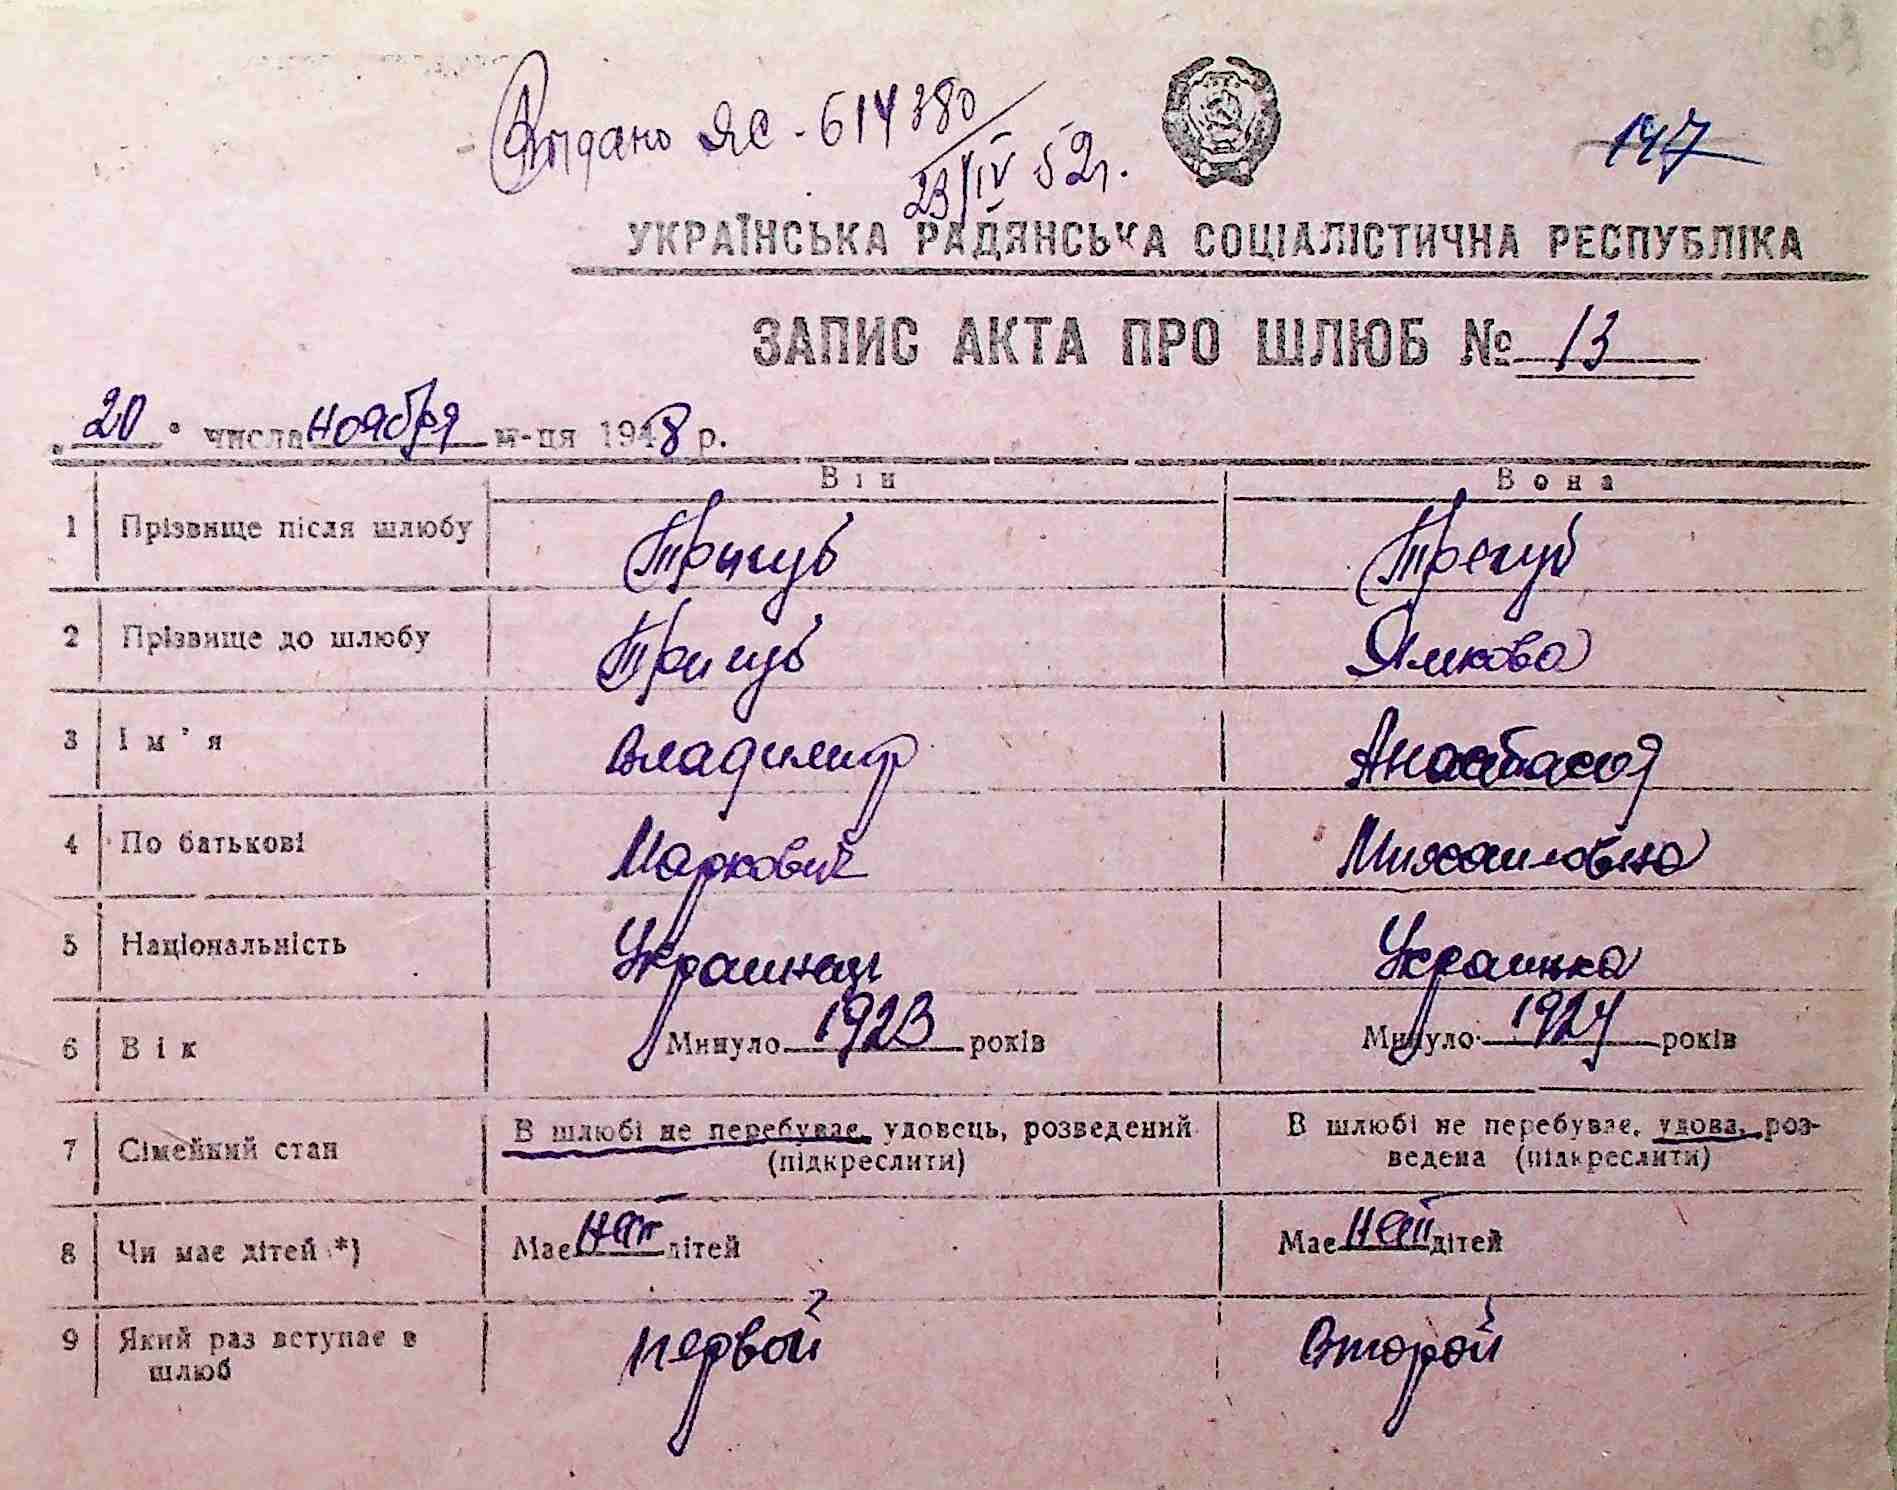 Выдано ЯС - 614380
23/IV 52г.
147
УКРАЇНСЬКА РАДЯНСЬКА СОЦІАЛІСТИЧНА РЕСПУБЛІКА
ЗАПИС АКТА ПРО ШЛЮБ № 13
„20" числа ноября м-ця 1948 р.
Він Вона
1 Прізвище після шлюбу Тригуб Тригуб
2 Прізвище до шлюбу Тригуб Ямкова
3 Ім'я Владимир Анастасия
4 По батькові Маркович Михайловна
5 Національність Украинец Украинка
6 Вік Минуло 1923 років Минуло 1924 років
7 Сімейний стан В шлюбі не перебуває, удовець, розведений (підкреслити) В шлюбі не перебуває, удова, розведена (підкреслити)
8 Чи має дітей *) Має нет дітей Має нет дітей
9 Який раз вступає в шлюб первой второй